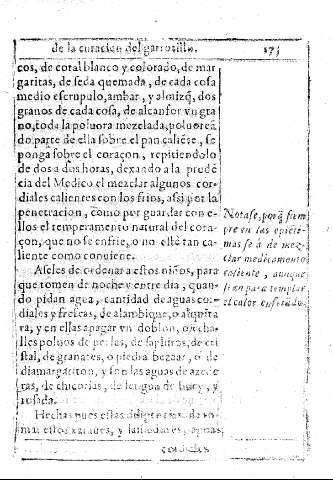 de la curacion del garrotillo. 173
cos, de cotal blanco y colorado, de mar
garitas, de seda quemada, de cada cosa
medio escrupulo, ambar, y almizq̃, dos
granos de cada cosa, de alcanfor vn gra
no, toda la poluora mezclada, poluoreã
do parte de ella sobre el pan caliẽte, se
ponga sobre el coraçon, repitiendolo
de dos a dos horas, dexando a la prudẽ
cia del Medico el mezclar algunos cor-
diales calientes con los frios, assi por la
penetracion, como por guardar con e-
llos el temperamento natural del cora-
çon, que no se enfrie, o no estè tan ca-
liente como conuiene.
Notase, porq̃ siem
pre en las epicti-
mas se à de mez-
clar medicamento
caliente, aunque
sean para templar
el calor
Aseles de ordenar a estos niños, para
que tomen de noche y entre dia, quan-
do pidan agua, cantidad de aguas cor-
diales y frescas, de alambique, o alquita
ra, y en ellas apagar vn doblon, o echa-
lles poluos de perlas, de saphiros, de cri
stal, de granates, o piedra bezaar, o de
diamargariton, y son las aguas de azede
ras, de chicorias, de lengua de buey, y
rosada.
Hechas pues estas diligencias, de to-
mar estos xaraues, y